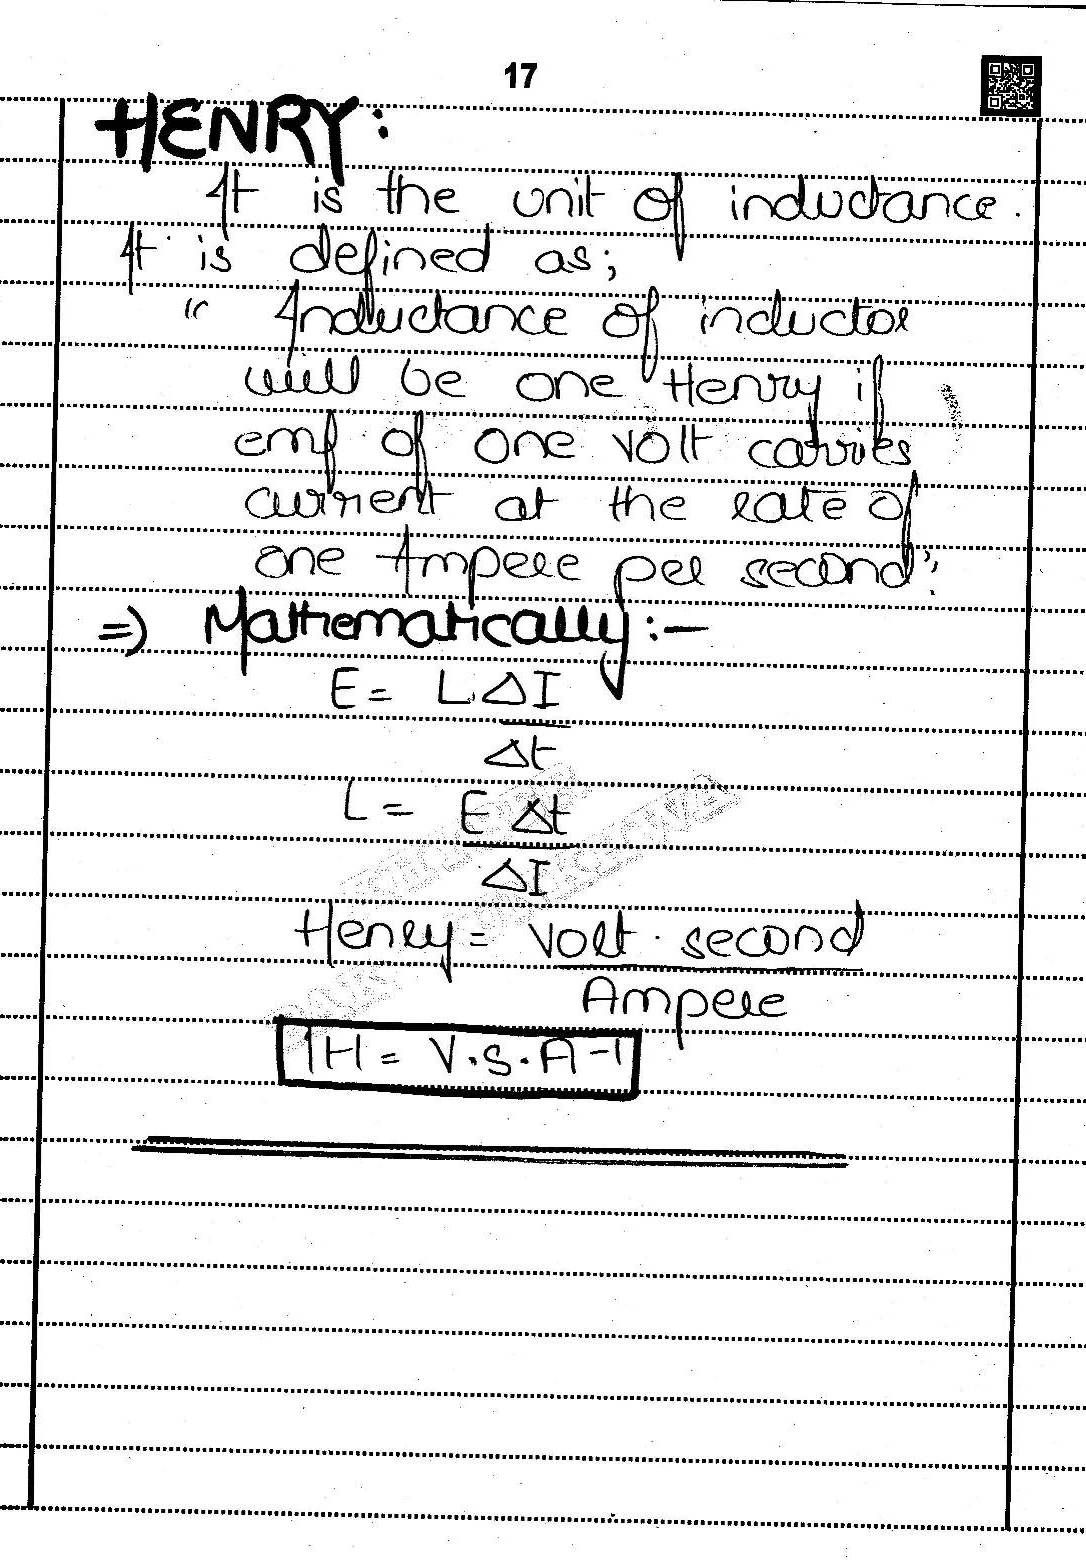 17
HENRY:
It is the unit of inductance.
It is defined as;
" Inductance of inductor
will be one Henry if
emf of one volt carries
current at the rate of
one Ampere per second".
=> Mathematically:-
E = L ΔI
Δt
L = E Δt
ΔI
Henry = Volt . second
Ampere
1H = V.S.A-1